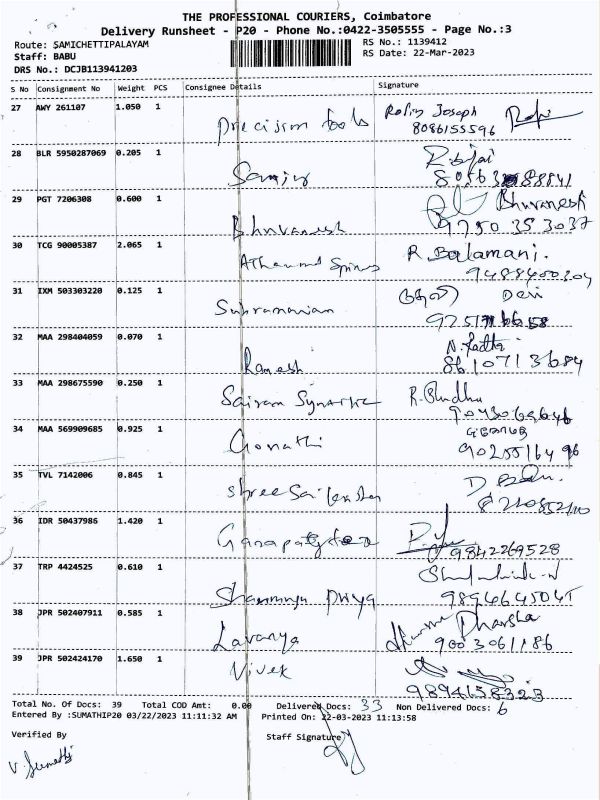 THE PROFESSIONAL COURIERS, Coimbatore
Delivery Runsheet - P20 - Phone No.:0422-3505555 - Page No.:3
Route: SAMICHETTIPALAYAM RS No.: 1139412
Staff: BABU RS Date: 22-Mar-2023
DRS No.: DCJB113941203
S No Consignment No Weight PCS Consignee Details Signature
27 AWY 261107 1.050 1 Precision tools Rolin Joseph
8086155596
28 BLR 5950287069 0.205 1 Sanjiv
29 PGT 7206308 0.600 1 Bhuvanesh Bhuvanesh
9750 35 3037
30 TCG 90005387 2.065 1 R. Balamani.
9488400304
31 IXM 503303220 0.125 1 Subramaniam Devi
32 MAA 298404059 0.070 1 Ramesh
8610713684
33 MAA 298675590 0.250 1 Sairam
34 MAA 569909685 0.925 1 Gomathi
9025516496
35 TVL 7142006 0.845 1 Shree
36 IDR 50437986 1.420 1
9842269528
37 TRP 4424525 0.610 1 Shanmuga Priya
38 JPR 502407911 0.585 1 Lavanya Dharsha
9003061186
39 JPR 502424170 1.650 1 Vivek
9894158323
Total No. Of Docs: 39 Total COD Amt: 0.00 Delivered Docs: 33 Non Delivered Docs: 6
Entered By :SUMATHIP20 03/22/2023 11:11:32 AM Printed On: 22-03-2023 11:13:58
Verified By Staff Signature
V. Sumathi